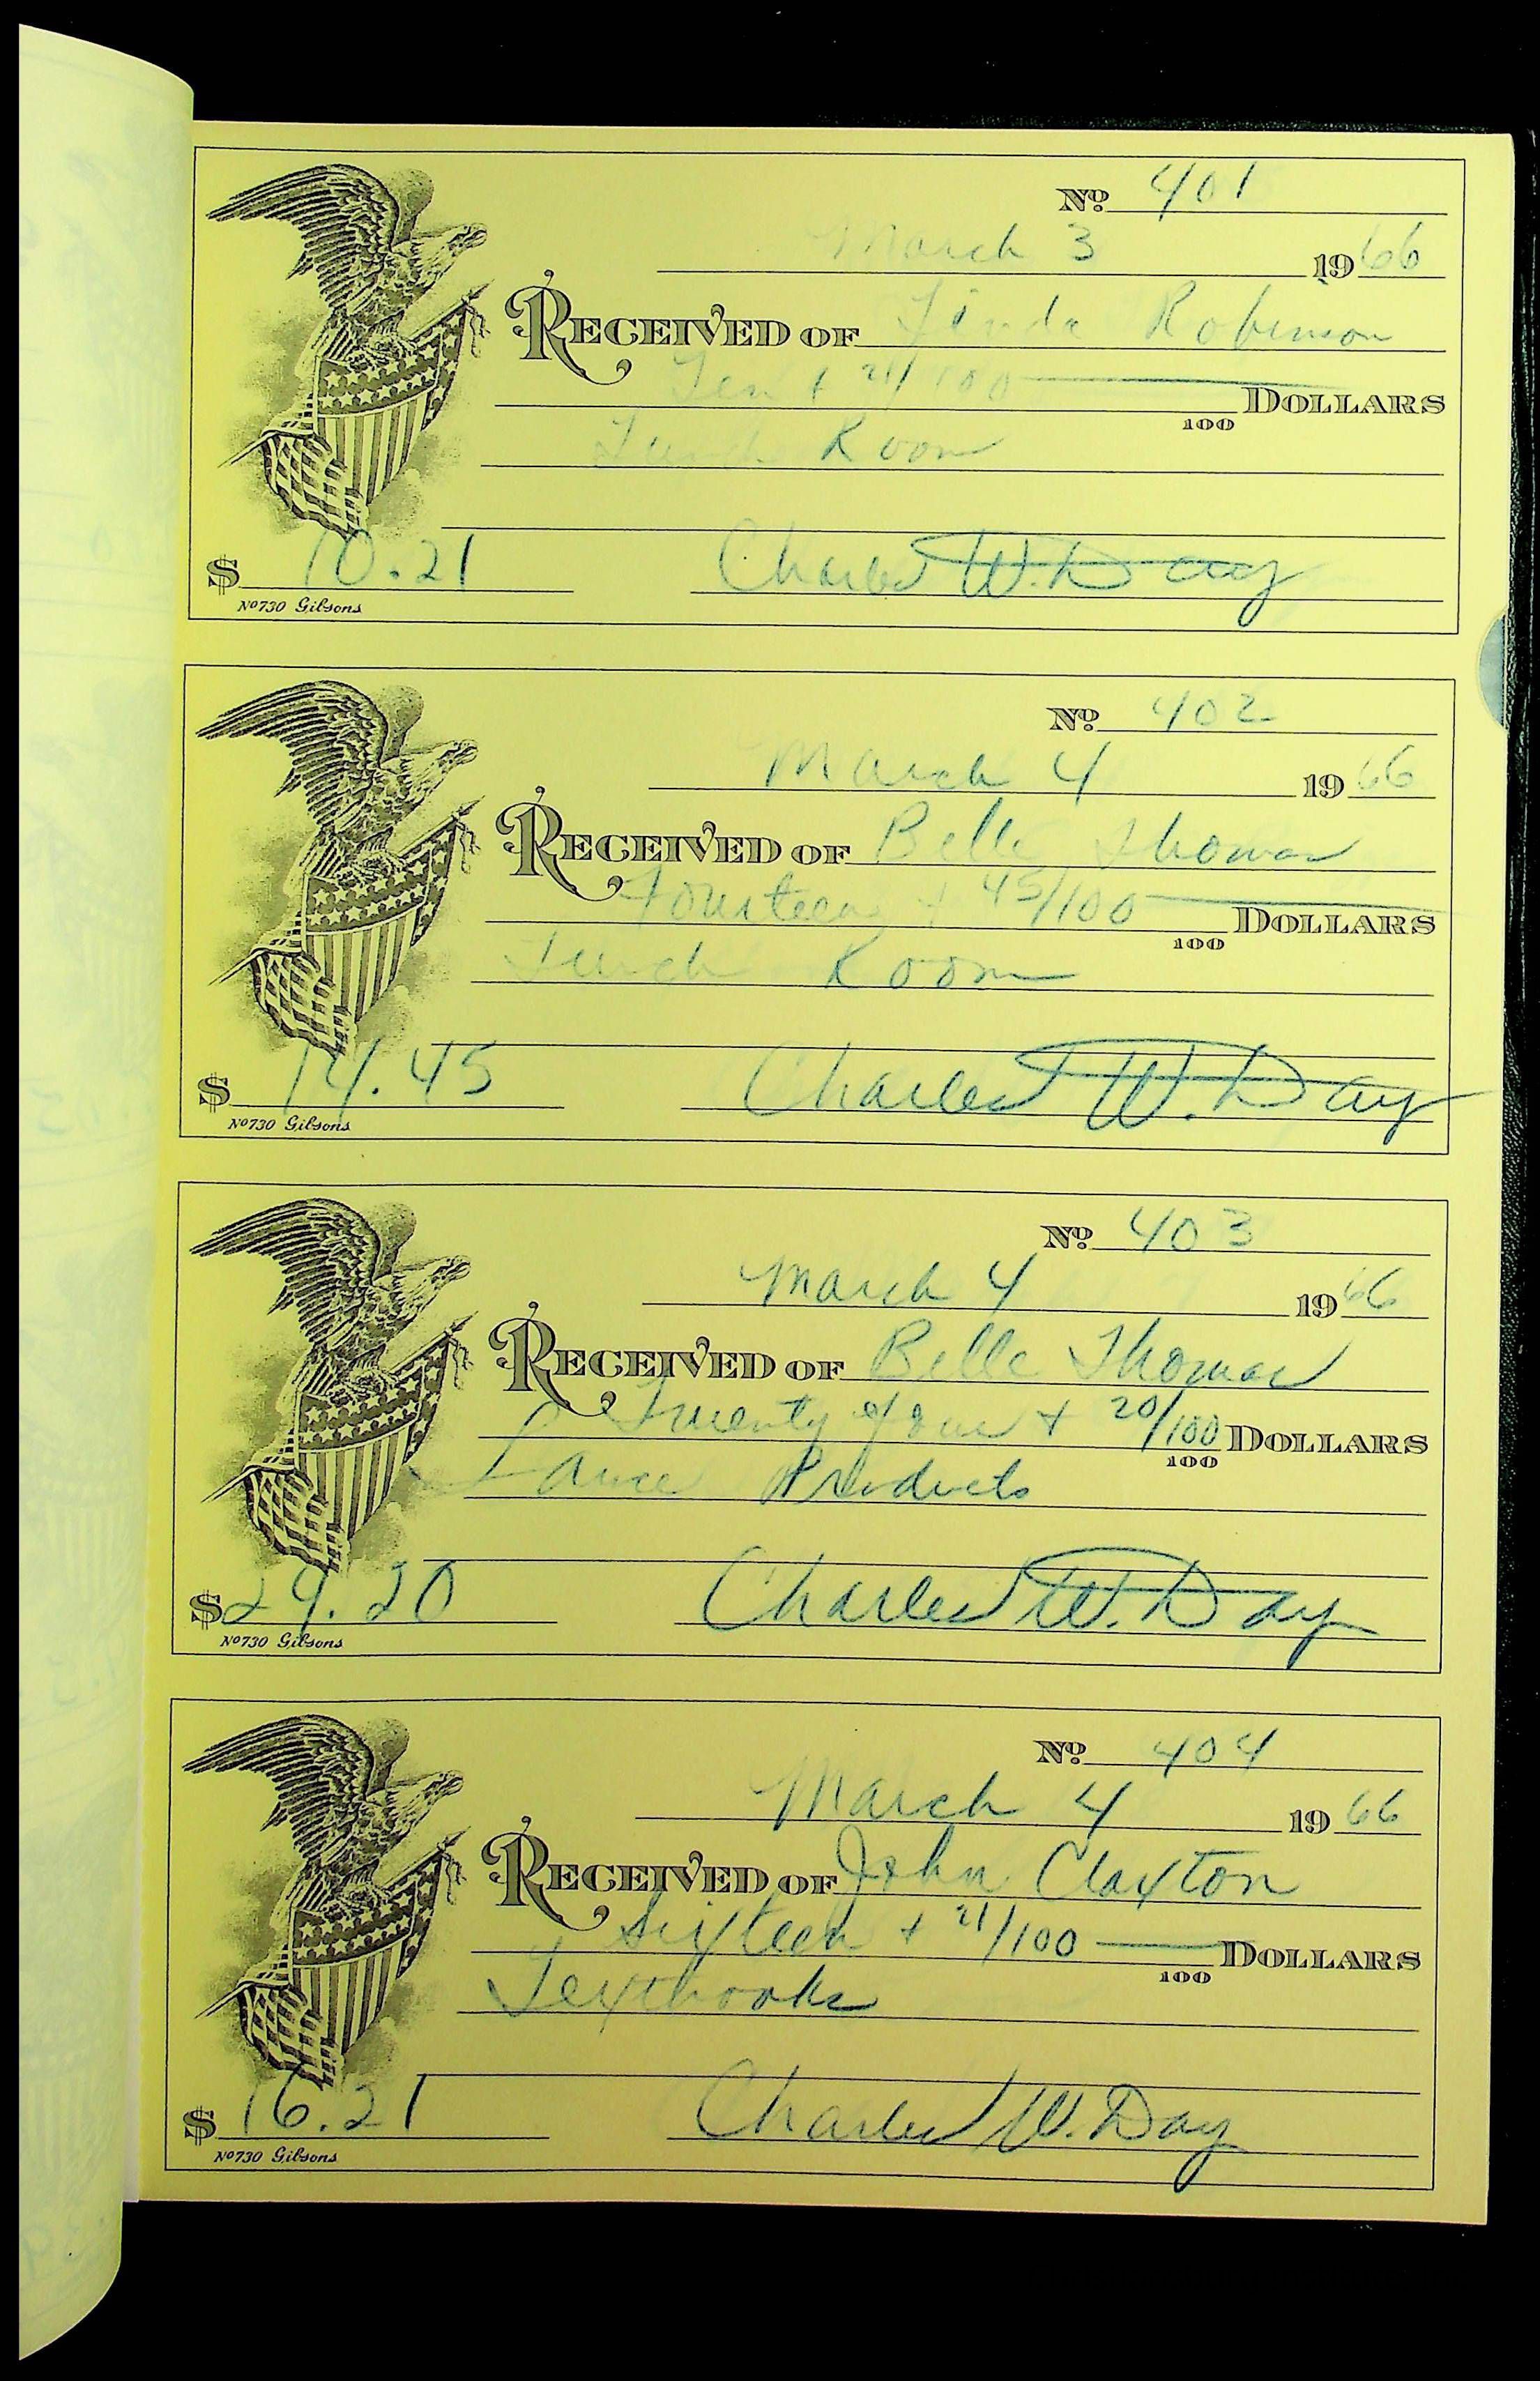 No 401
March 3 1966
RECEIVED OF Linda Robinson
Ten + 21/100 DOLLARS
100
Lunch Room
$ 10.21 Charles W. Day
No 730 Gibsons
No 402
March 4 1966
RECEIVED OF Belle Thomas
Fourteen + 45/100 DOLLARS
100
Lunch Room
$ 14.45 Charles W. Day
No 730 Gibsons
No 403
March 4 1966
RECEIVED OF Belle Thomas
Twenty + 20/100 DOLLARS
100
Lance Products
$ 20 Charles W. Day
No 730 Gibsons
No 404
March 4 1966
RECEIVED OF John Claxton
Sixteen + 21/100 DOLLARS
100
Textbooks
$ 16.21 Charles W. Day
No 730 Gibsons